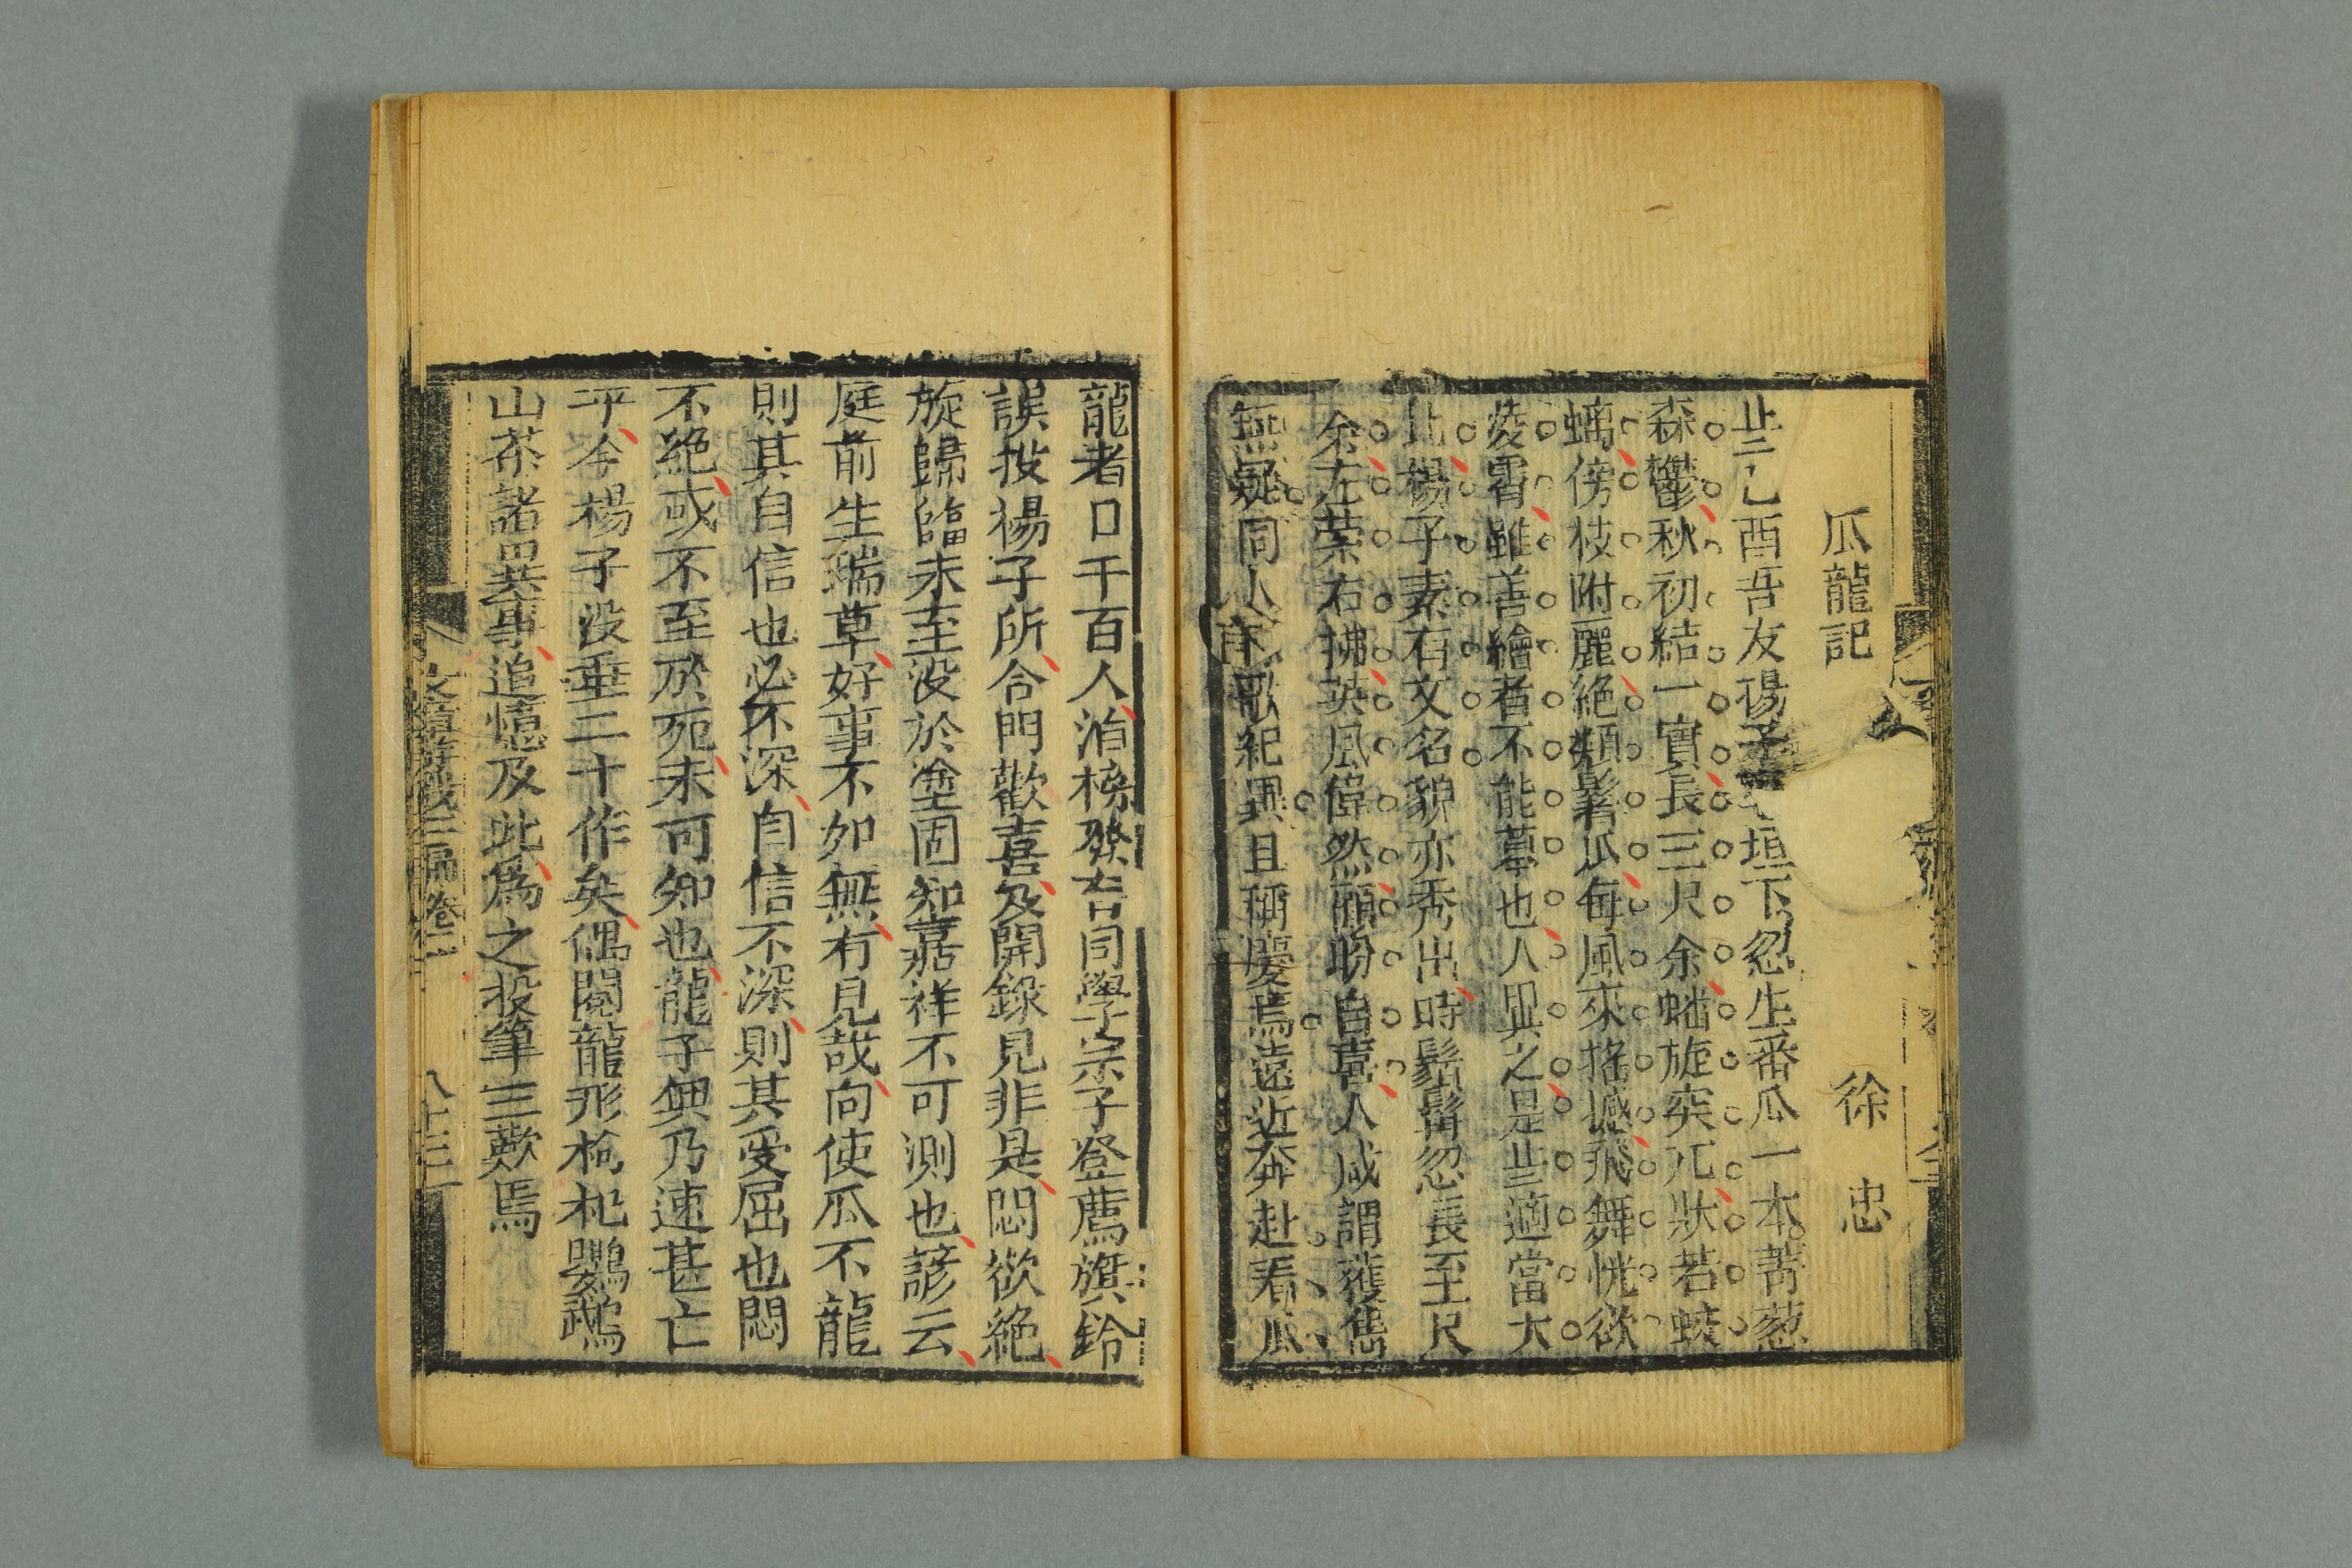 瓜龍記
徐忠
歲乙酉吾友楊子垣下忽生番瓜一本菁葱
森鬱秋初結一實長三尺余蟠旋突兀狀若蛟
螭傍枝附麗絕類鬐瓜每風來搖撼飛舞恍欲
凌霄雖善繪者不能摹也人異之是歲適當大
比楊子素有文名貌亦秀出時鬍鬚忽長至尺
余左縈右拂英風偉然顧盼自喜人咸謂獲雋
無疑同人詠歌紀異且稱慶焉遠近奔赴看瓜
龍者日千百人洎榜發吉同學宗子登薦旗鈴
誤投楊子所合門歡喜及開錄見非是悶欲絕
旋歸臨未至沒於塗固知嘉祥不可測也諺云
庭前生瑞草好事不如無有見哉向使瓜不龍
則其自信也必不深自信不深則其受屈也悶
不絕或不至於死未可知也龍子無乃速其亡
乎今楊子沒垂二十作矣偶閱龍形枸杞鸚鵡
山茶諸異事追憶及此為之投筆三歎焉
三編卷二
八十三